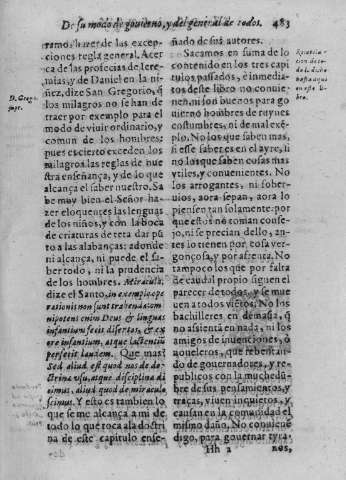 De su modo de gouierno, y del general de todos. 483
ramo hazer de las excep-
ciones regla general. Acer
ca de las profecias de Iere-
mias, y de Daniel en la ni-
ñez, dize San Gregorio, q̃
los milagros no se han de
traer por exemplo para el
modo de viuir ordinario, y
comun de los hombres:
pues es cierto exceden los
milagros las reglas de nue-
stra enseñança, y de lo que
alcança el saber nuestro. Sa
be muy bien el Señor ha-
zer eloquentes las lenguas
de los niños, y en la boca
de criaturas de teta dar pũ
to a las alabanças: adonde
ni alcança, ni puede el sa-
ber todo, ni la prudencia
de los hombres. Miracula,
dize el Santo, in exemplo ope
rationis non sunt trahenda: om
nipotens enim Deus & linguas
infantium fecit disertas, & ex
ore infantium, atque lactentiũ
perfecit laudem. Que mas?
Sed aliud est quod nos de do-
ctrina vsu, atque disciplina di
cimus, aliud quod de miraculo
scimus. Y esto es tambien lo
que se me alcança a mi de
todo lo que toca a la doctri
na de este capitulo ense-
D. Grego.
supr.
ñado de sus autores.
Sacamos en suma de lo
contenido en los tres capi
tulos passados, è inmedia-
tos deste libro no conuie-
nen, ni son buenos para go
uierno hombres de ruynes
costumbres, ni de mal exẽ-
plo. No los que saben mas,
si esse saber es en el ayre, si
no los que saben cosas mas
vtiles, y conuenientes. No
los arrogantes, ni sober-
uios, aora sepan, aora lo
piensen tan solamente: por
que estos no toman conse-
jo, ni se precian dello, an-
tes lo tienen por cosa ver-
gonçosa, y por afrenta. No
tampoco los que por falta
de caudal propio siguen el
parecer de todos, y se mue
uen a todos vientos. No los
bachilleres en demasia, q̃
no assienta en nada, ni los
amigos de inuenciones, ò
aqueleros, que rebentan-
do de gouernadores, y re-
publicos con la muchedũ-
bre de sus pensamientos, y
traças, viuen inquietos, y
causan en la comunidad el
mismo daño. No conuiene
digo, para gouernar tyra-
Hh 2 nos,